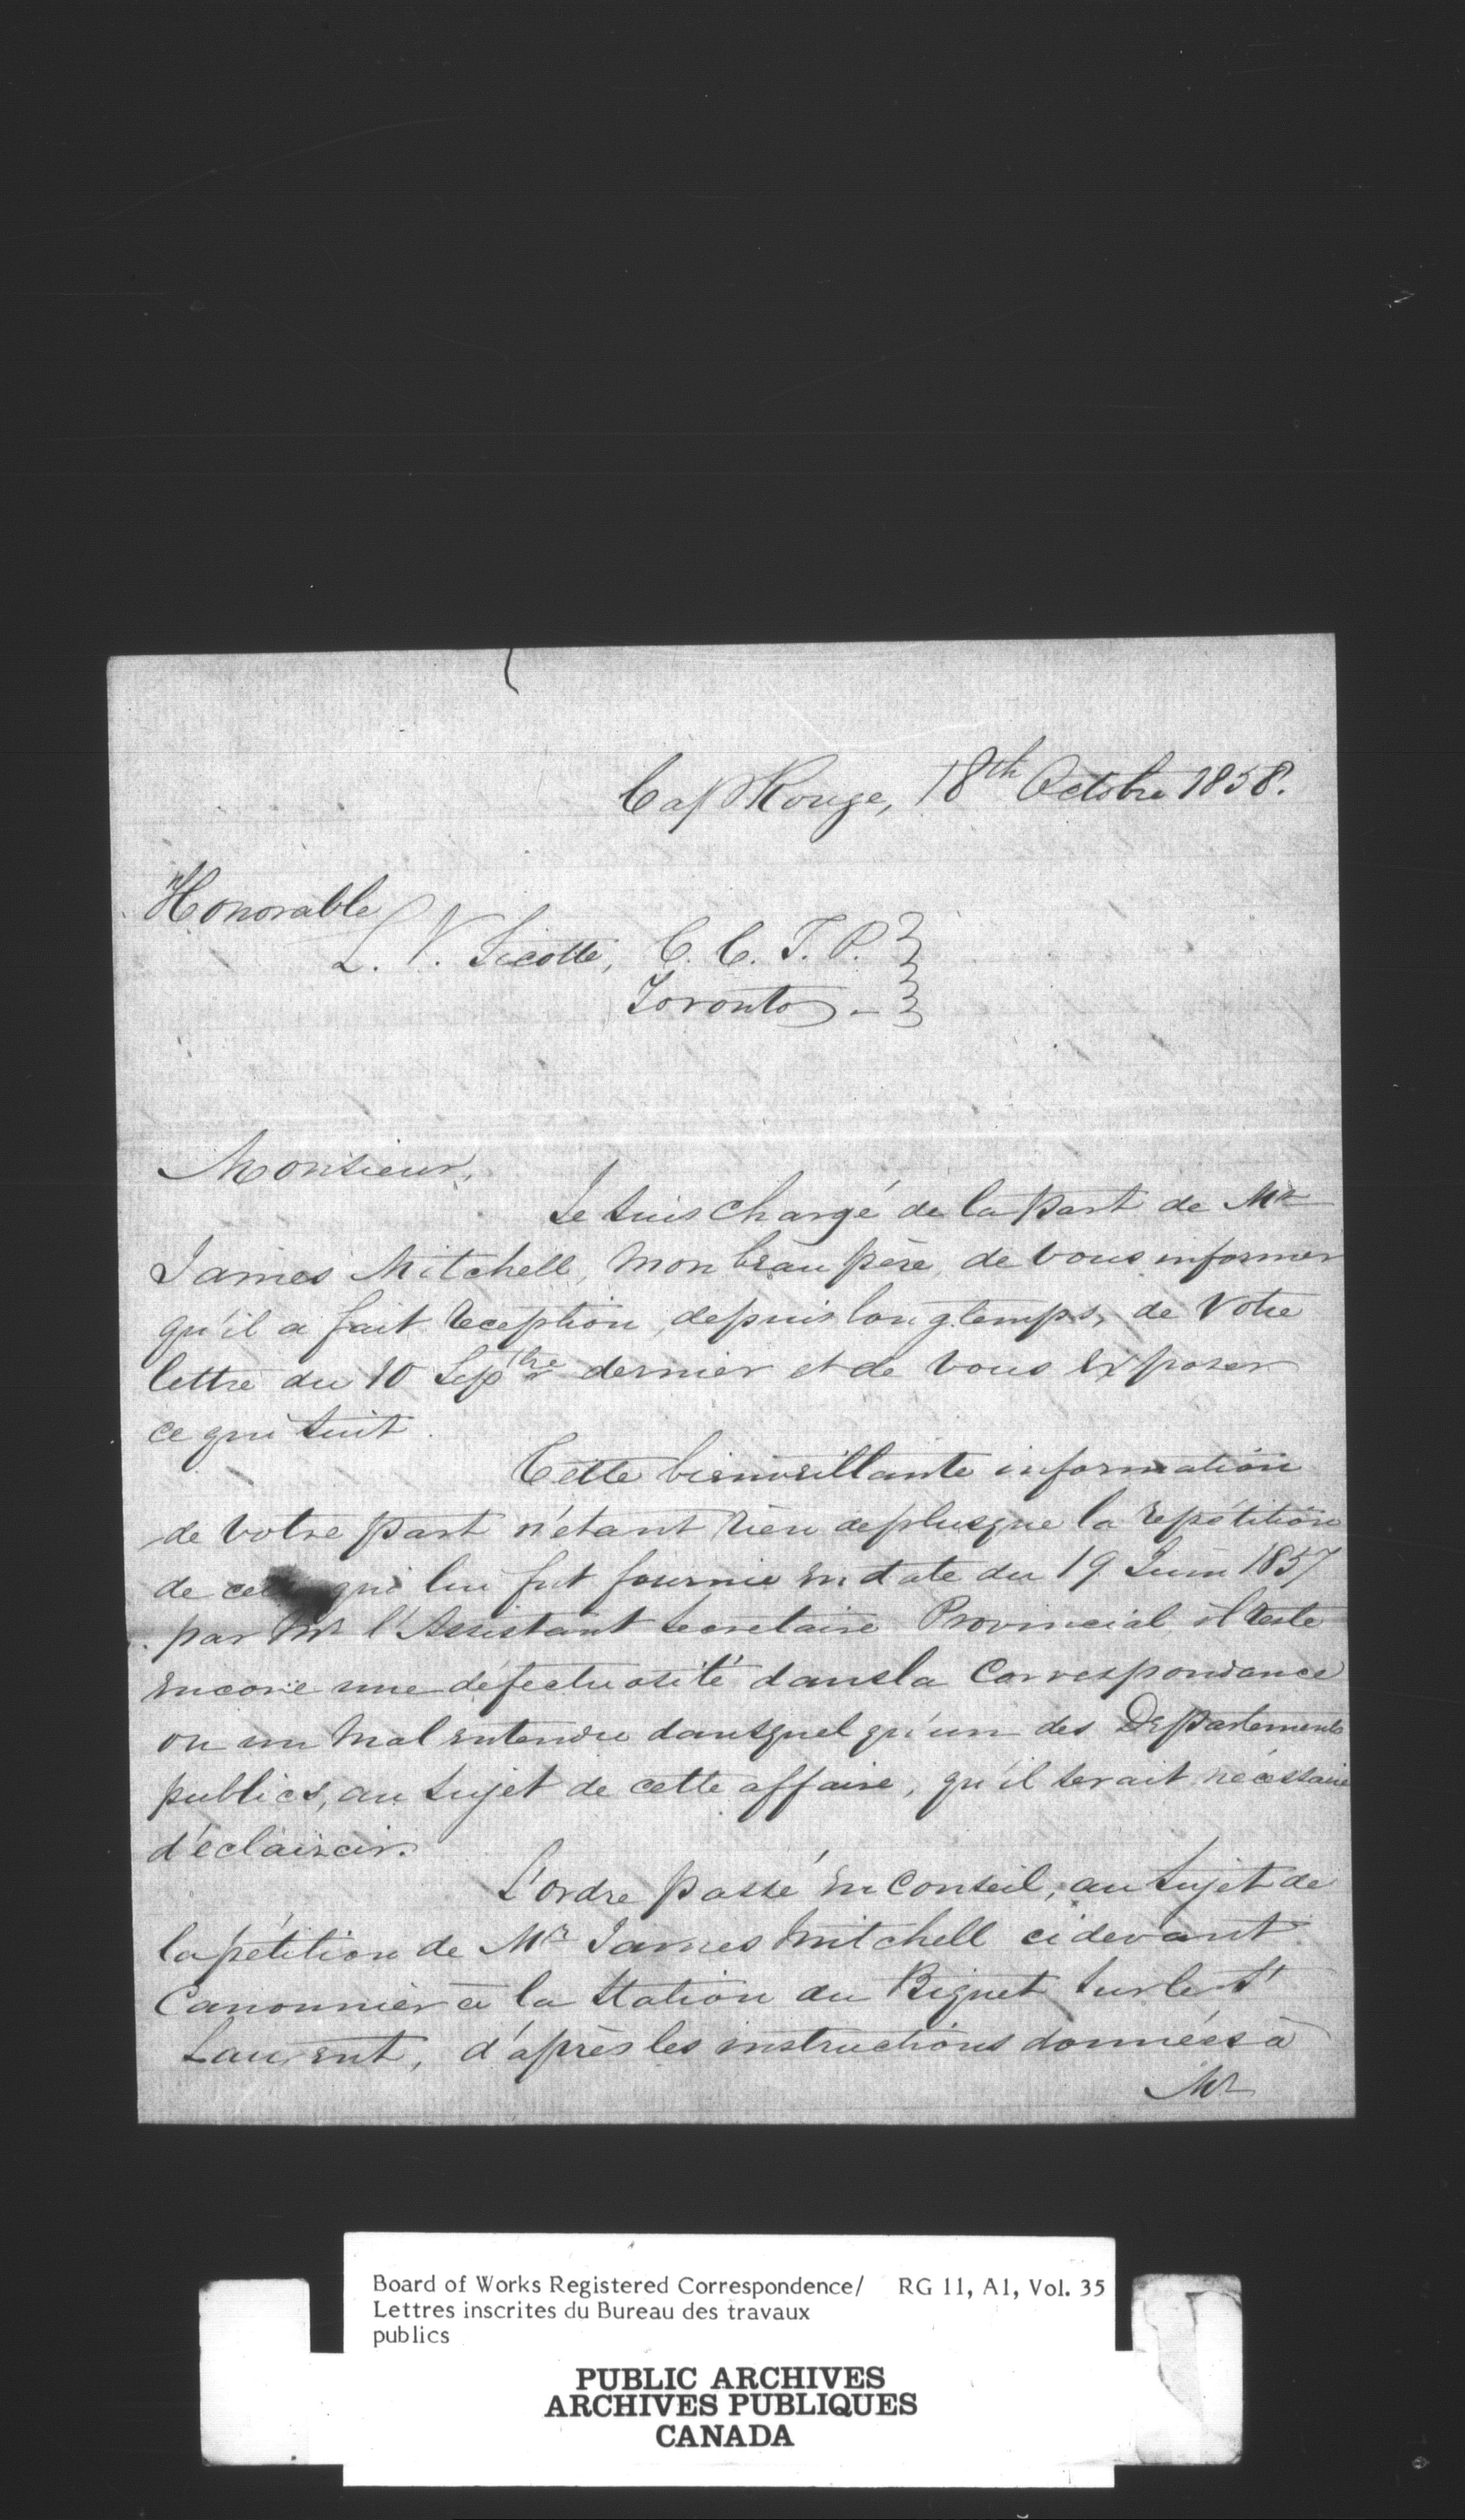 Cap Rouge, 18th Octobre 1858.
Honorable
L. V. Sicotte, C. C. T. P.
Toronto -
Monsieur,
Je suis chargé de la part de Mr
James Mitchell, mon beau père, de vous informer
qu'il a fait reception, depuis longtemps, de votre
lettre du 10 Septbre dernier et de vous exposer
ce qui suit.
Cette bienveillante information
de votre part n'étant rien de plus que la repétition
de celle qui lui fut fournie en date du 19 Juin 1857
par Mr l'Assistant Secretaire Provincial, il reste
encore une défectuosité dans la Correspondance
ou un mal entendu dans quelqu'un des Departements
publics, au sujet de cette affaire, qu'il serait nécessaire
d'éclaircir.
L'ordre passé en Conseil, au sujet de
la pétition de Mr James Mitchell ci devant
Canonnier à la Station du Biquet sur le St
Laurent, d'après les instructions données à
Mr
Board of Works Registered Correspondence/ RG 11, A1, Vol. 35
Lettres inscrites du Bureau des travaux
publics
PUBLIC ARCHIVES
ARCHIVES PUBLIQUES
CANADA